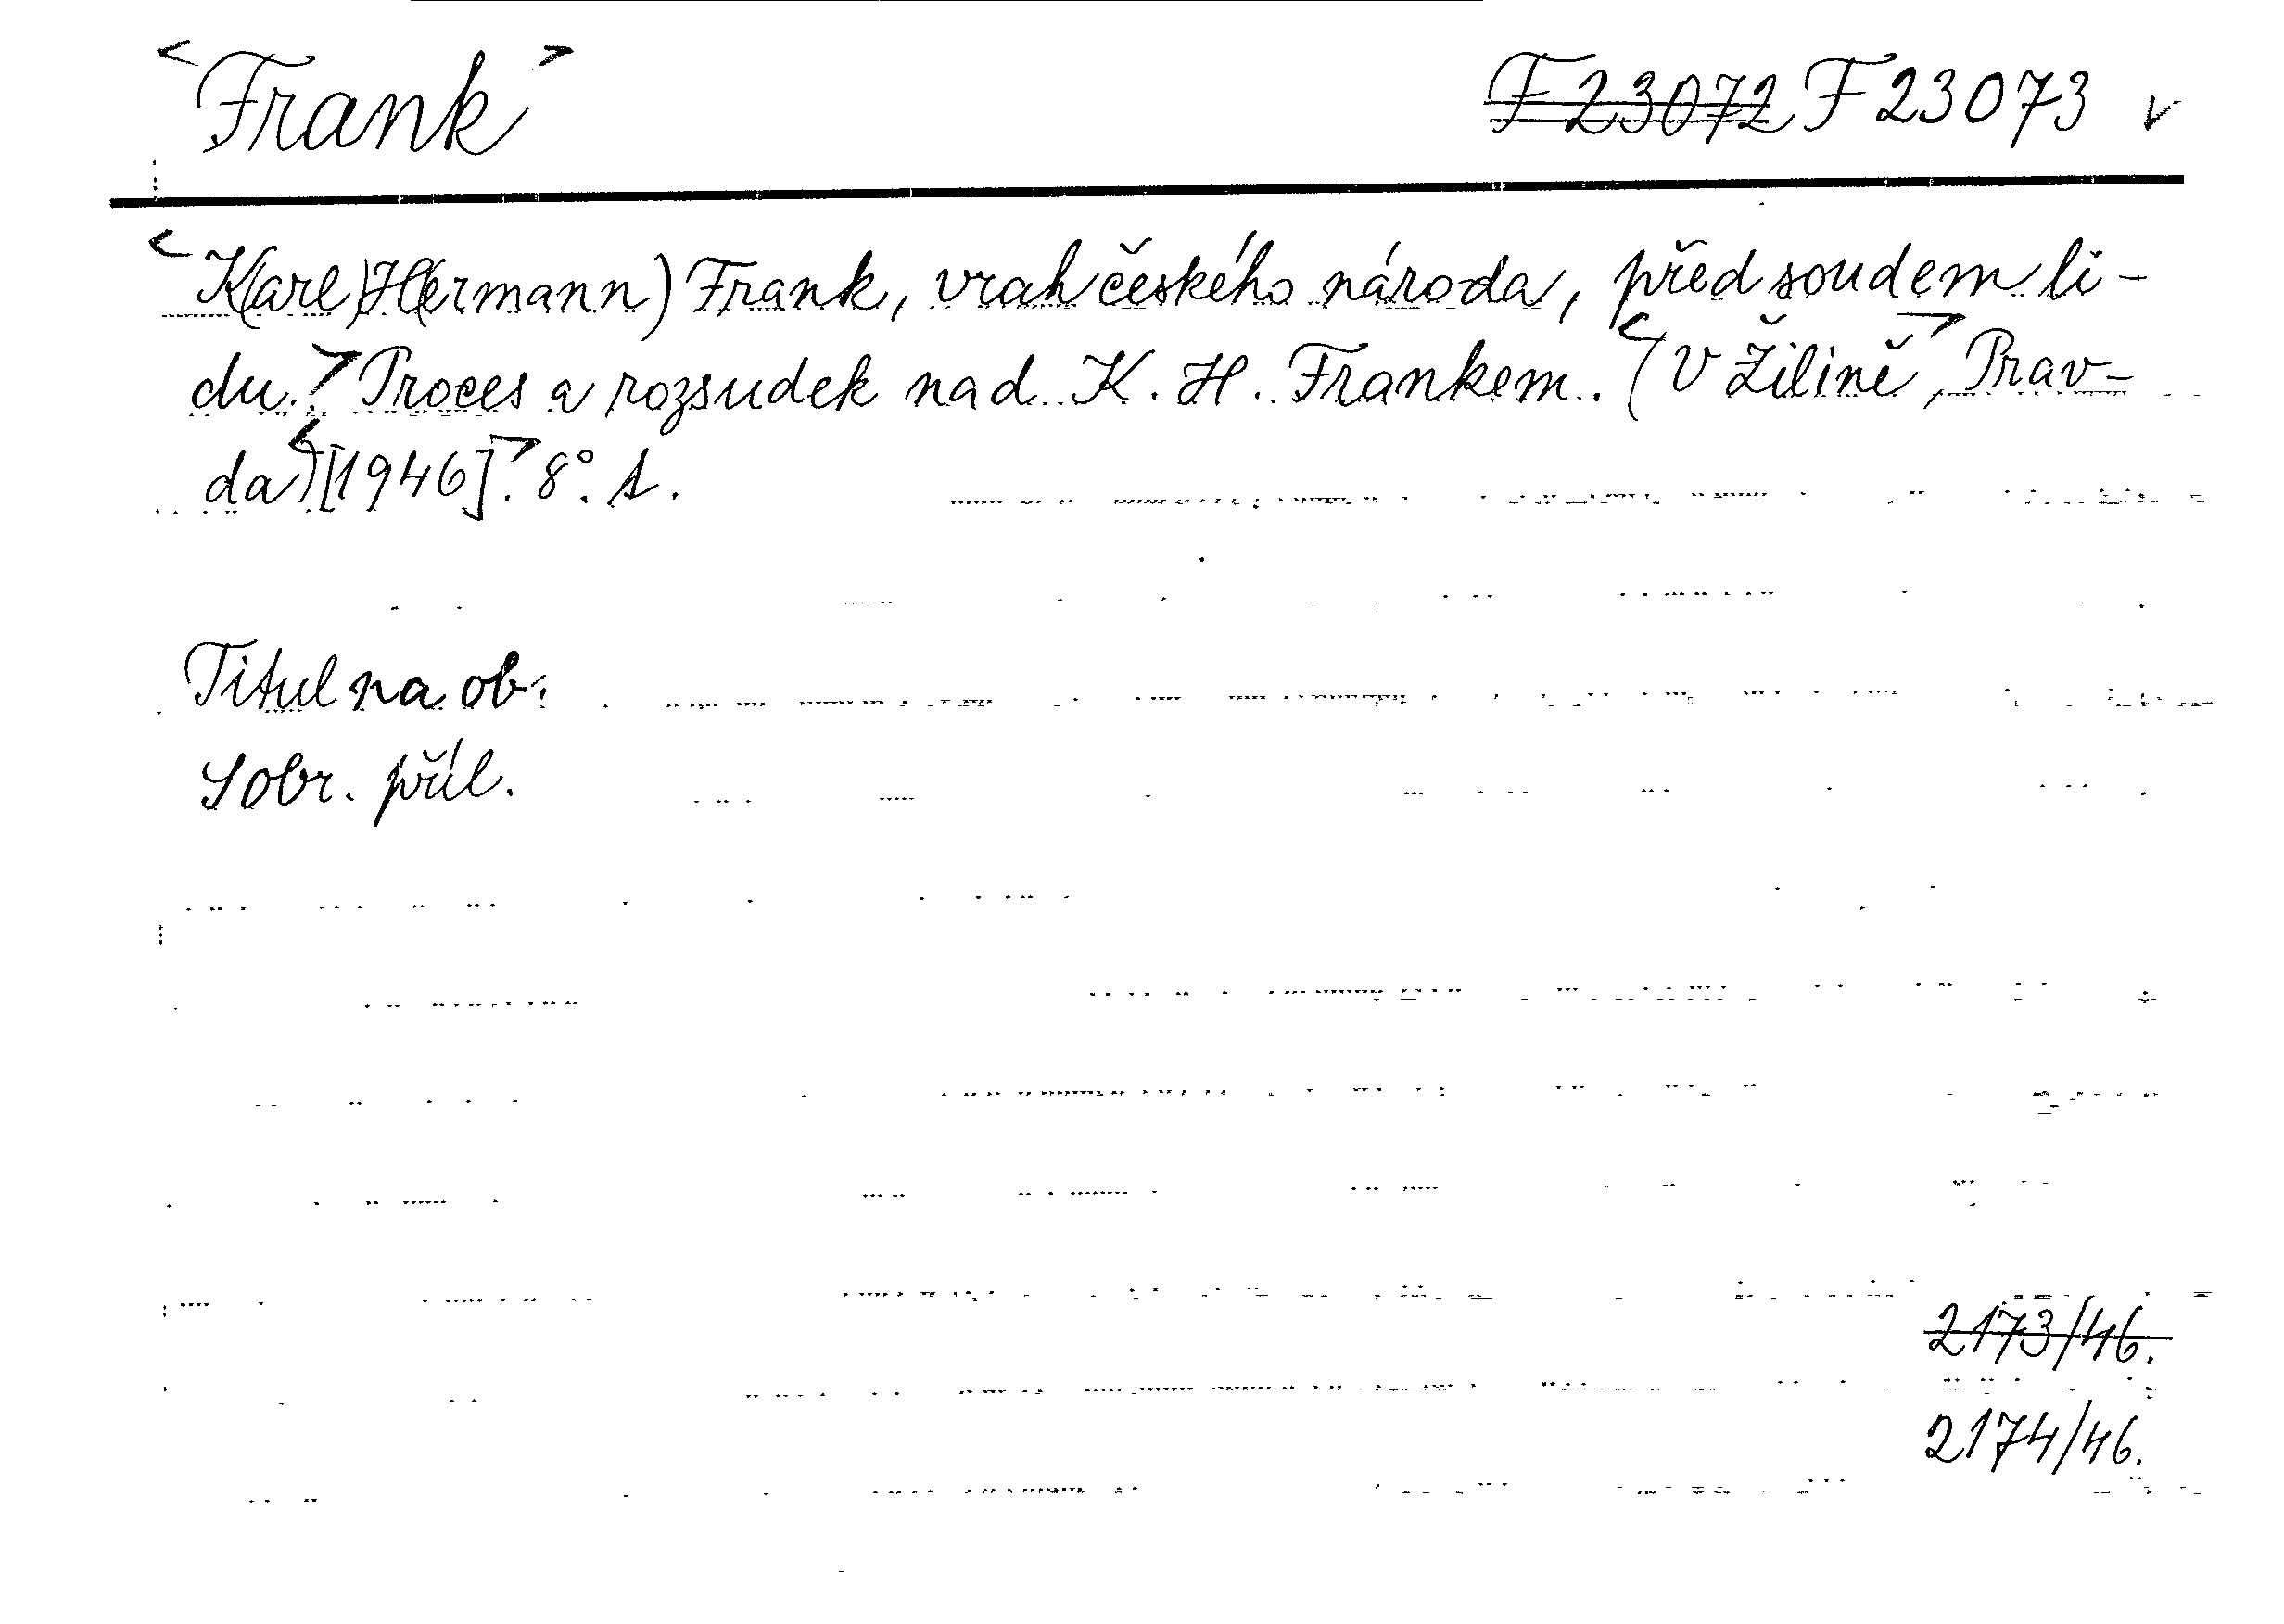 <Frank> F 23072 F 23073 v
<K(arl) H(ermann) Frank, vrah českého národa, před soudem li-
du.> Proces a rozsudek nad K. H. Frankem. <(V Žilině>, Prav-
da) <[1946].> 8°. 1.
Titul na ob.
S obr. příl.
2173/46.
2174/46.